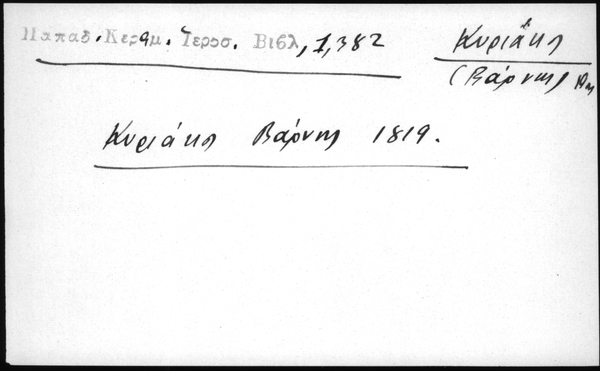 Παπαδ. Κεραμ. Ἱεροσ. Βιβλ, 1,382
Κυριάκος
(Βάρνης
Κυριάκος Βάρνης 1819.